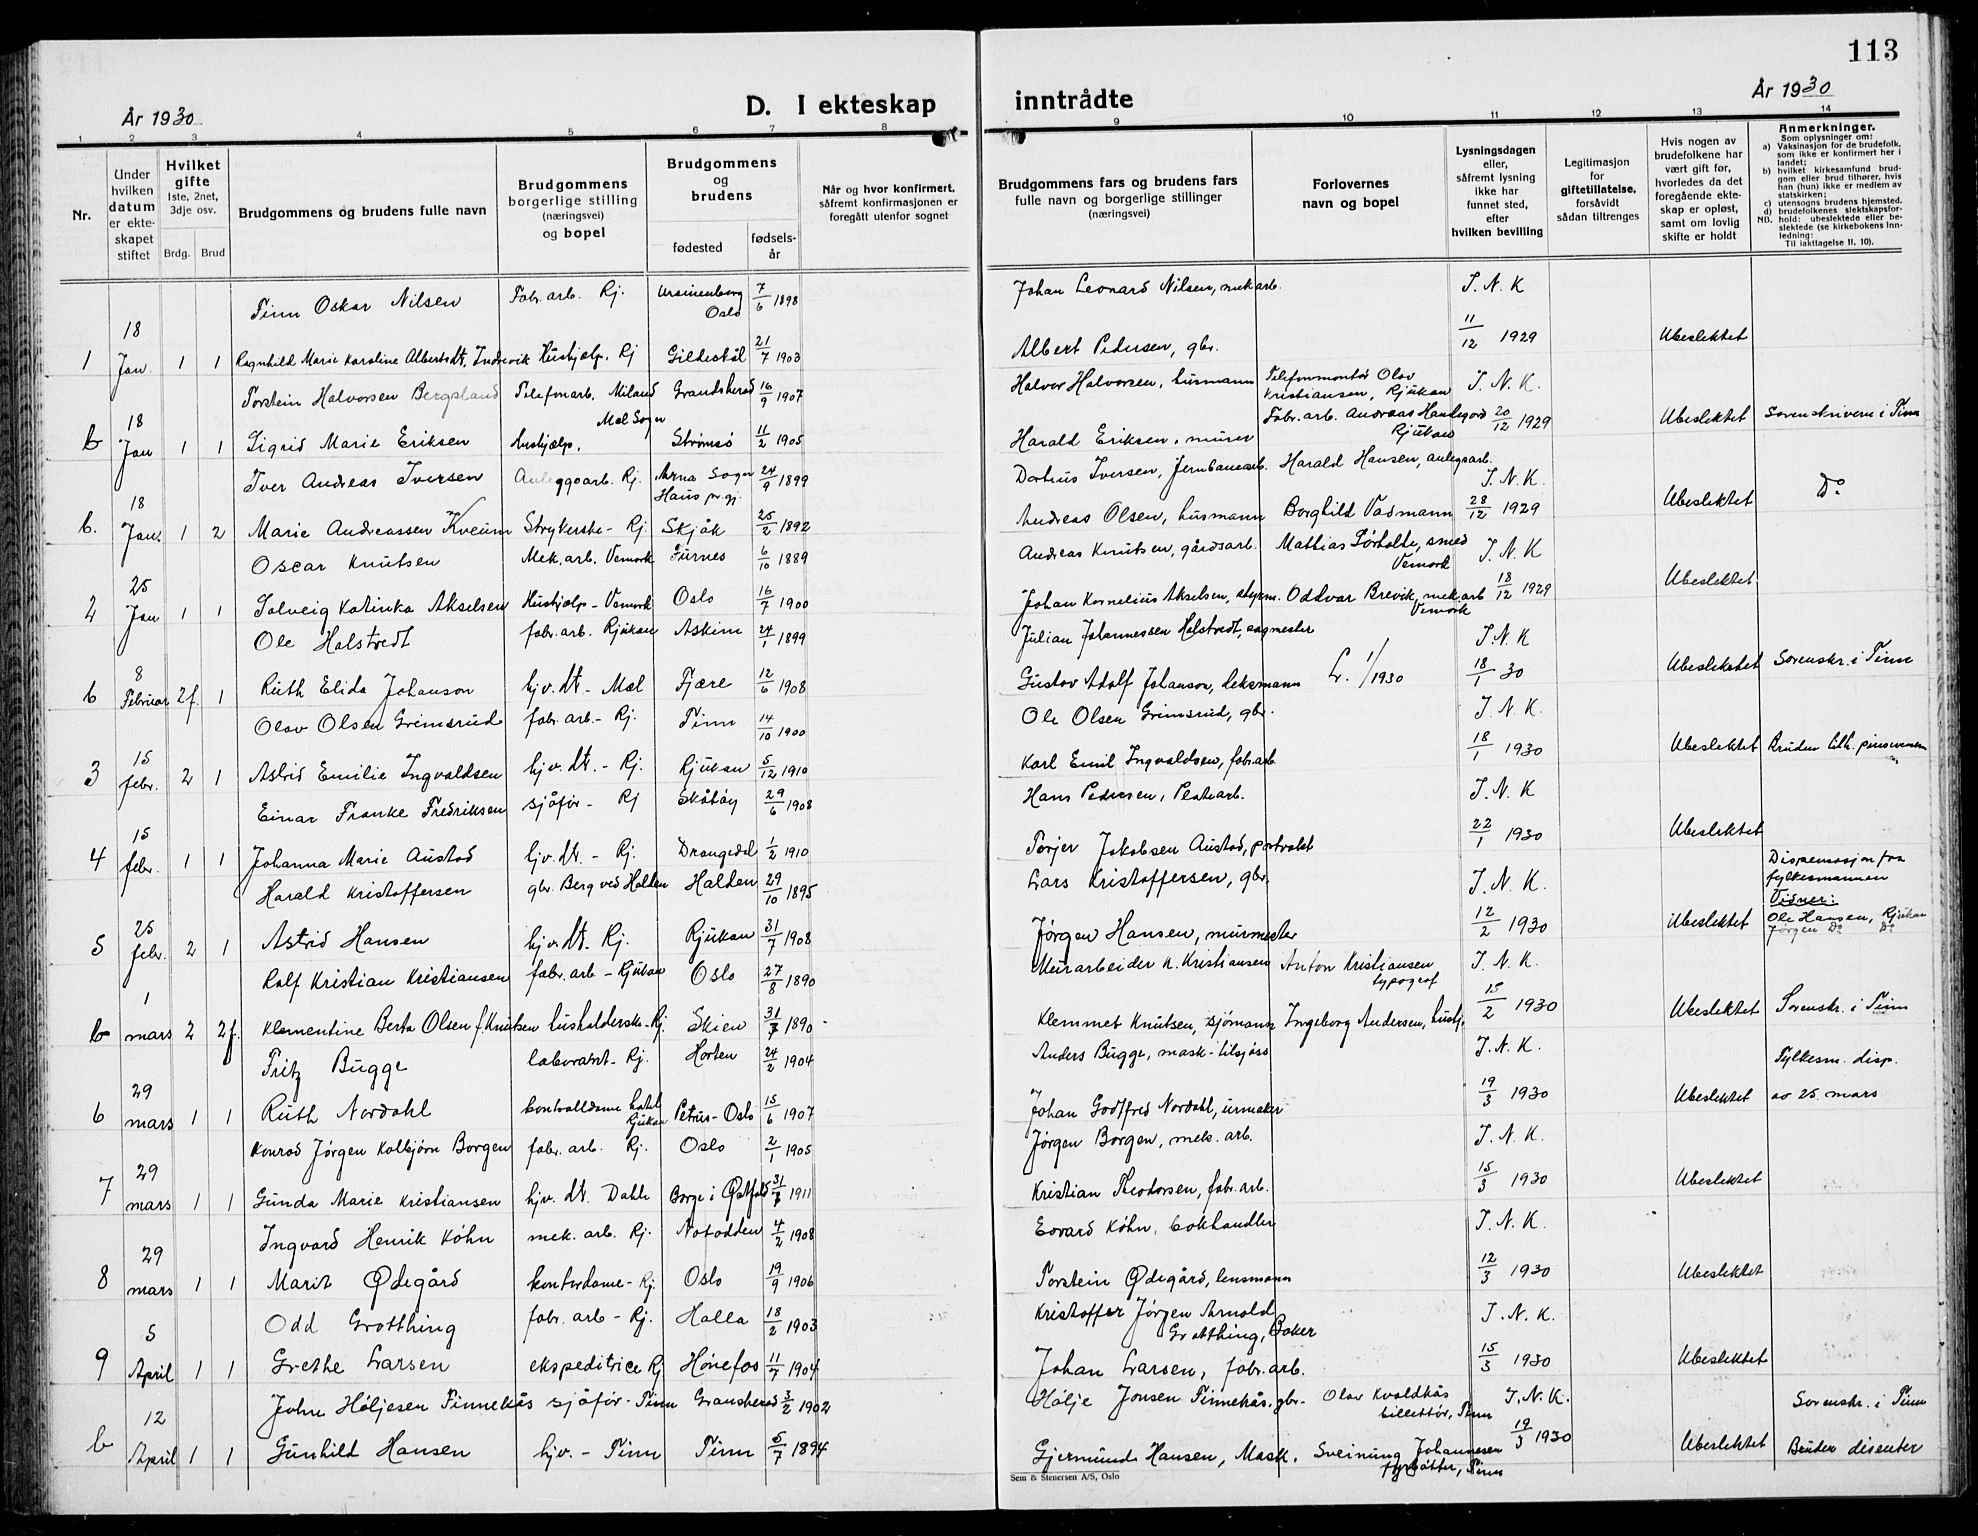 113
År 1930
D. I ekteskap inntrådte
År 1930
1 2 3 4 5 6 7 8 9 10 11 12 13 14
Nr.
Under hvilken datum er ekteskapet stiftet
Hvilket gifte
1ste, 2net, 3dje osv.
Brdg. Brud
Brudgommens og brudens fulle navn
Brudgommens borgerlige stilling (næringsvei) og bopel
Brudgommens og brudens
fødested
fødselsår
Når og hvor konfirmert, såfremt konfirmasjonen er foregått utenfor sognet
Brudgommens fars og brudens fars fulle navn og borgerlige stillinger (næringsvei)
Forlovernes navn og bopel
Lysningsdagen eller, såfremt lysning ikke har funnet sted, efter hvilken bevilling
Legitimasjon for giftetillatelse, forsåvidt sådan tiltrenges
Hvis nogen av brudefolkene har vært gift før, hvorledes da det foregående ekteskap er opløst, samt om lovlig skifte er holdt
Anmerkninger.
Som oplysninger om:
a) Vaksinasjon for de brudefolk, som ikke er konfirmert her i landet;
b) hvilket kirkesamfund brudgom eller brud tilhører, hvis han (hun) ikke er medlem av statskirken;
c) utensogns brudens hjemsted.
d) brudefolkenes slektskapsforhold: ubeslektede eller beslektede (se kirkebokens innledning:
NB. Til iakttagelse II, 10).
Finn Oskar Nilsen Fabr. arb. Rj. Oslo 7/6 1898 Johan Leonard Nilsen, mek arb. I. N. K
1 18 Jan. 1 1 Ragnhild Marie Karoline Albertsdt. Indrevik Hushjelp. Rj Gildeskål 21/7 1903 Albert Pedersen, gbr. 11/12 1929 Ubeslektet
Torstein Halvorsen Bergsland Telefonarb. Miland Mæl Sogn Gransherad 16/9 1907 Halvor Halvorsen, husmann Telefonmontør Olav Kristiansen, Rjukan I. N. K.
b 18 Jan 1 1 Sigrid Marie Eriksen Hushjelp. Strømsø 11/2 1905 Harald Eriksen, murer Fabr. arb. Andreas Rjukan 20/12 1929 Ubeslektet Sorenskriveren i Tinn
Iver Andreas Iversen Anleggsarb. Rj. Arna Sogn Haus pr.gj. 24/9 1899 Iversen, Jernbanearb. Harald Hansen, anlegsarb. I. N. K.
b. 18 Jan. 1 2 Marie Andreassen Kveum Strykerske - Rj. Skjåk 25/2 1892 Andreas Olsen, husmann Borghild Vadmann 28/12 1929 Ubeslektet Do
Oscar Knutsen Mek. arb. Vemork Furnes 6/10 1889 Andreas Knutsen, gårdsarb. Mathias Sørholte, smed Vemork I. N. K
2 25 Jan 1 1 Solveig Katinka Akselsen Hushjelp - Vemork Oslo 16/7 1900 Johan Kornelius Akselsen, styrm. Oddvar Brevik, mek. arb Vemork 18/12 1929 Ubeslektet
Ole Holstvedt fabr. arb. Rjukan Askim 24/1 1899 Julian Johannessen Holstvedt, sagmester I. N. K
b 8 Februar 2f. 1 Ruth Elida Johanson hjv. dt. - Mæl Fjære 12/6 1908 Gustav Adolf Johanson, Lr. 1/1930 18/1 30 Ubeslektet Sorenskr. i Tinn
Olav Olsen Grimsrud fabr. arb. - Rj. Tinn 14/10 1900 Ole Olsen Grimsrud, gbr. I. N. K.
3 15 febr. 2 1 Astrid Emilie Ingvaldsen hjv. dt. - Rj. Rjukan 5/12 1910 Karl Emil Ingvaldsen, fabr. arb 18/1 1930 Ubeslektet Bruden tilh. pinsevennen
Einar Franke Fredriksen sjåfør - Rj Skåtøy 29/6 1908 Hans Pedersen, I. N. K
4 15 febr. 1 1 Johanna Marie Austad hjv. dt. - Rj. Drangedal 1/2 1910 Torjer Jakobsen Austad, portvakt 22/1 1930 Ubeslektet
Harald Kristoffersen gbr. Berg ved Halden Halden 29/10 1895 Lars Kristoffersen, gbr. I. N. K. Dispensasjon fra fylkesmannen
5 25 febr. 2 1 Astrid Hansen hjv. dt. Rj. Rjukan 31/7 1908 Jørgen Hansen, murmester 12/2 1930 Ubeslektet Vidner: Ole Hansen, Rjukan Jørgen Do Do
Rolf Kristian Kristiansen fabr. arb - Rjukan Oslo 27/8 1890 Murarbeider K. Kristiansen Anton Kristiansen typograf I. N. K.
b 1 mars 2 2f. Klementine Berta Olsen f. Knutsen husholderske - Rj. Skien 31/7 1890 Klemmet Knutsen, sjømann Ingeborg Andersen, hustr. 15/2 1930 Ubeslektet Sorenskr. i Tinn
Fritz Bugge laborant - Rj. Horten 24/2 1904 Anders Bugge, mask-tilsjøs I. N. K. Fylkesm. disp.
6 29 mars 1 1 Ruth Nordahl kontrolldame hotel Rjukan Petrus - Oslo 15/6 1907 Johan Godtfred Nordahl, urmaker 19/3 1930 Ubeslektet av 25. mars
Konrad Jørgen Kolbjørn Borgen fabr. arb. Rj. Oslo 2/1 1905 Jørgen Borgen, mek. arb. I. N. K.
7 29 mars 1 1 Gunda Marie Kristiansen hjv. dt. Dahle Borge i Østfold 31/7 1911 Kristian Theodorsen, fabr. arb. 15/3 1930 Ubeslektet
Ingvard Henrik Köhn mek. arb. Rj. Notodden 4/2 1908 Edvard Köhn, bokhandler I. N. K.
8 29 mars 1 1 Marit Ødegård kontordame - Rj. Oslo 19/9 1906 Torstein Ødegård, lensmann 12/3 1930 Ubeslektet
Odd Grotthing fabr. arb - Rj. Holla 18/2 1903 Kristoffer Jørgen Arnold Grotthing, Baker I. N. K.
9 5 April 1 1 Grethe Larsen ekspeditrice Rj Hønefos 11/7 1904 Johan Larsen, fabr. arb. 15/3 1930 Ubeslektet
John Høljesen Finnekås sjåfør - Tinn Gransherad 3/2 1902 Hølje Jonsen Finnekås, gbr. Olav Kvaldkås billettør, Tinn I. N. K. Sorenskr. i Tinn
b 12 April 1 1 Gunhild Hansen hjv. - Tinn Tinn 5/7 1894 Gjermund Hansen, Mask. Sveinung Johannesen fyrbøter, Tinn 19/3 1930 Ubeslektet Bruden disenter
Sem & Stenersen A/S, Oslo